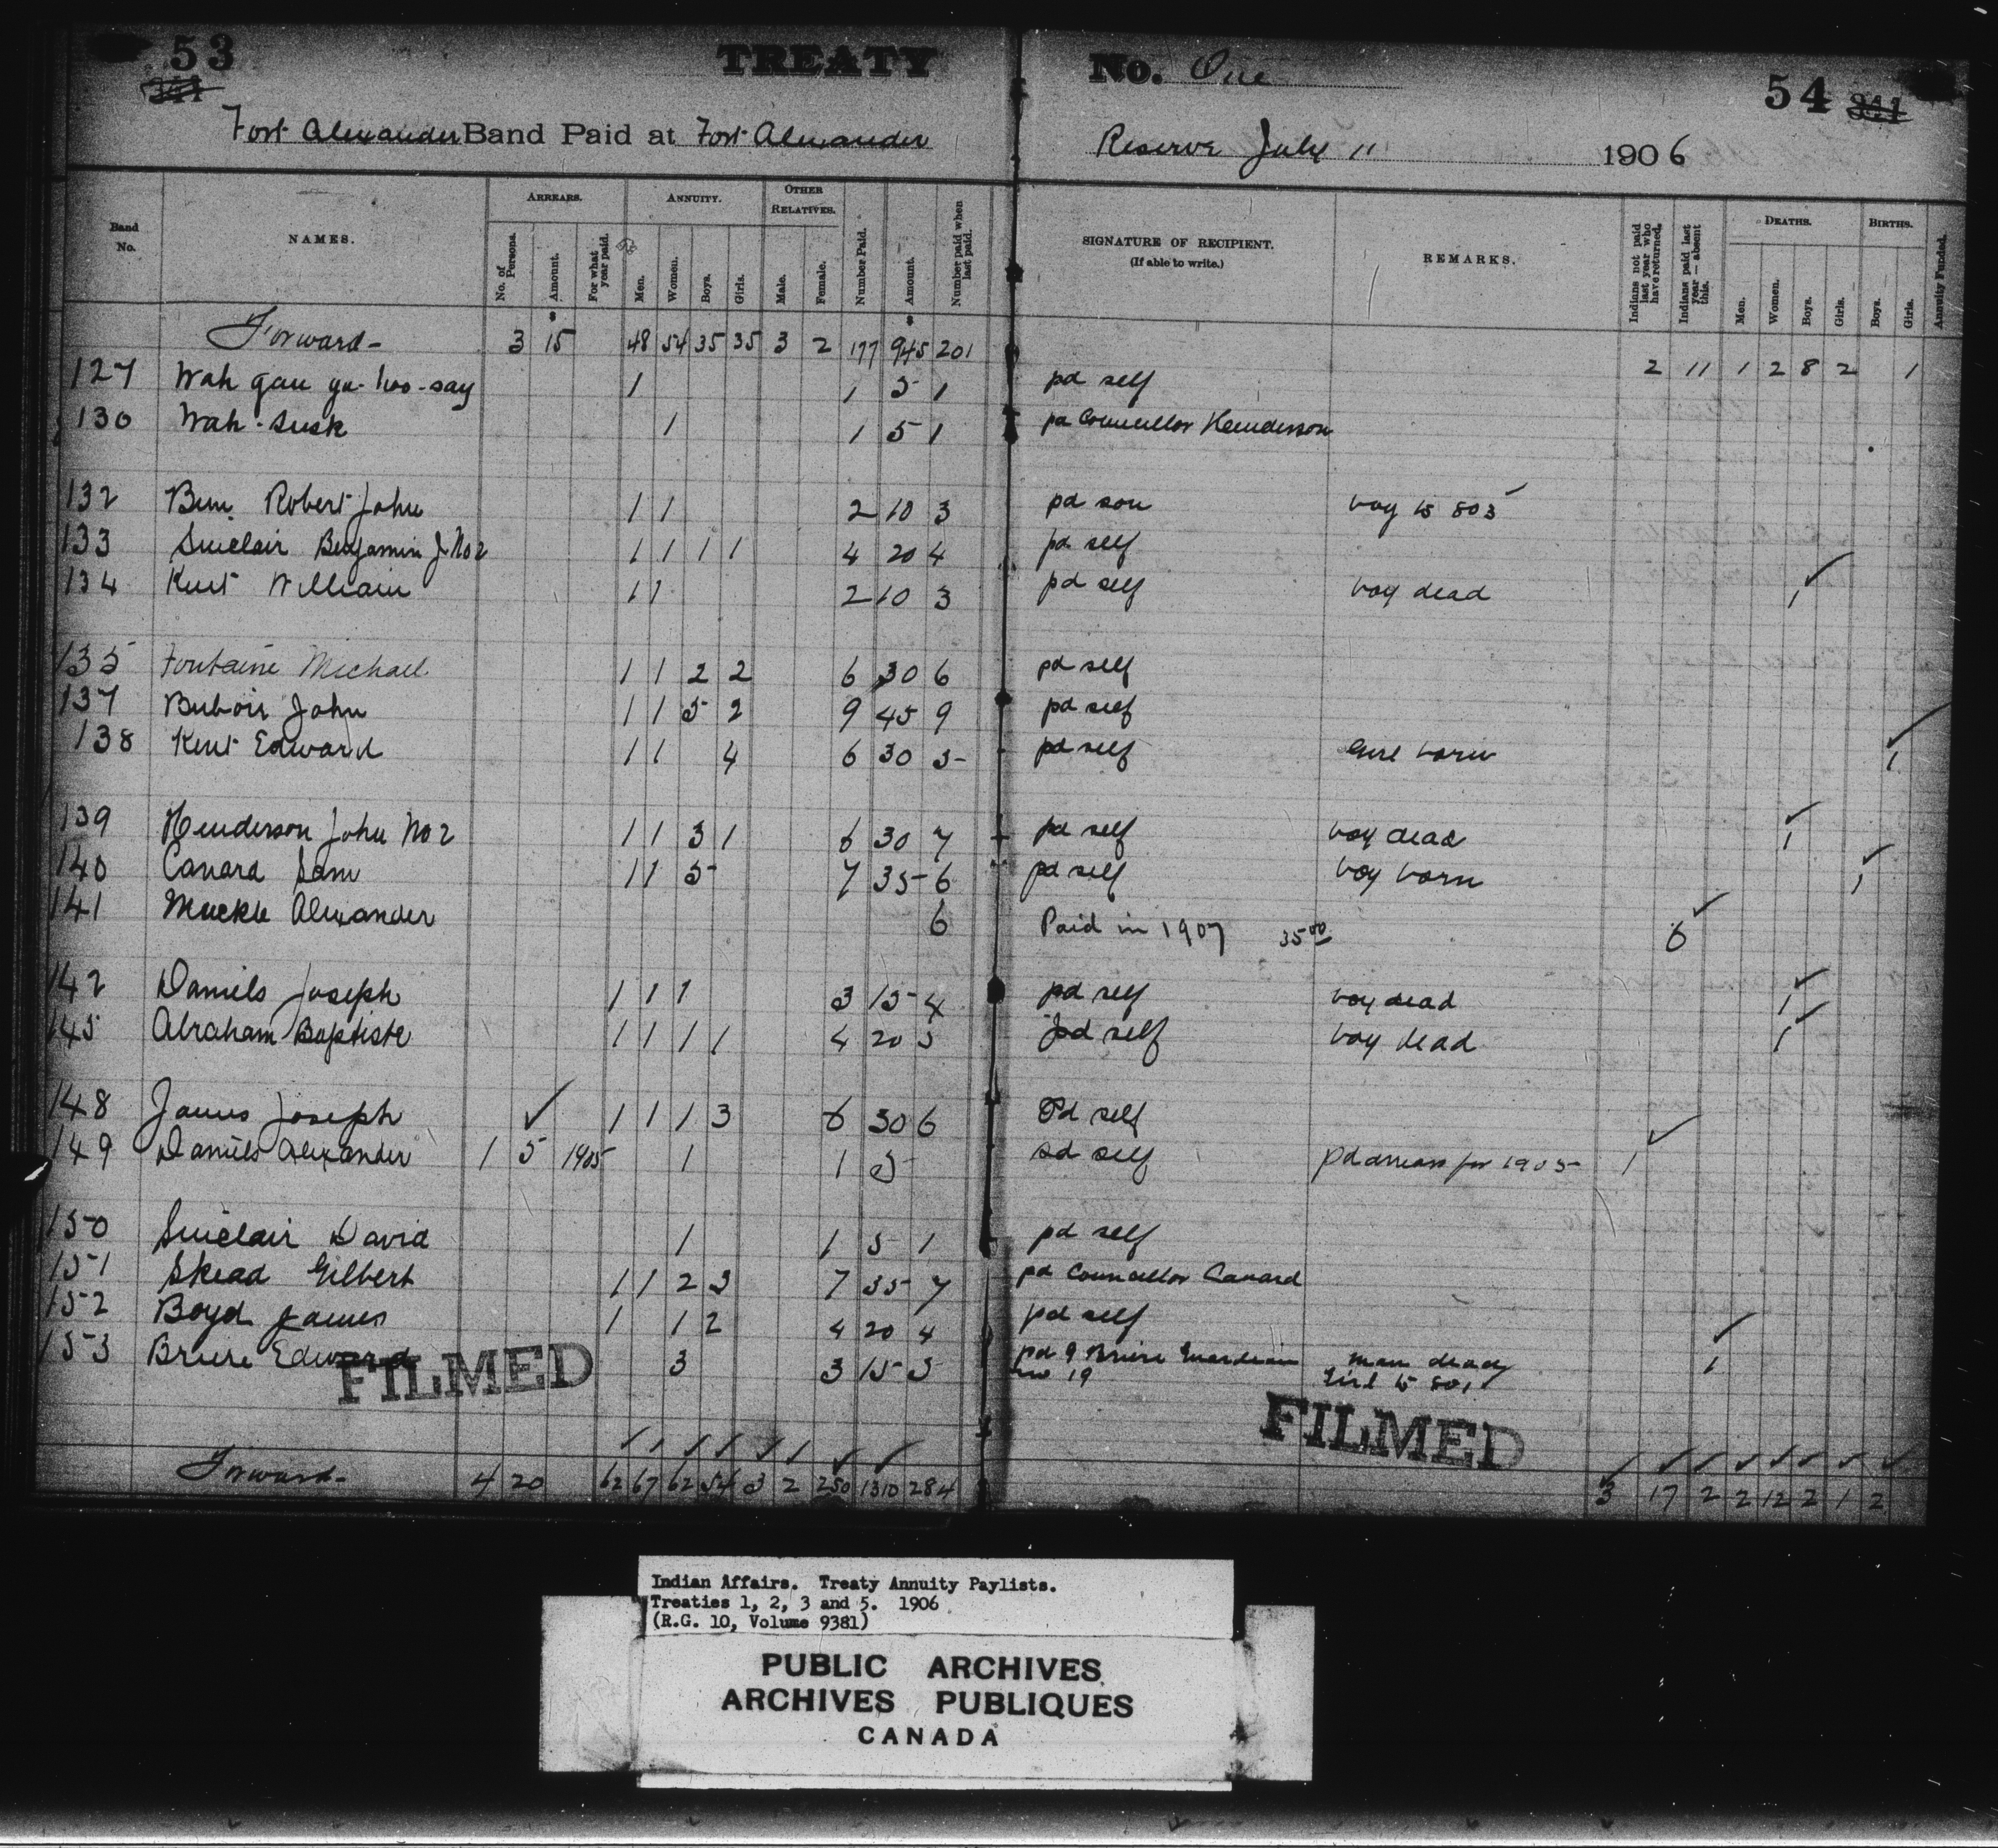 53
TREATY No. One
54
Fort Alexander Band Paid at Fort Alexander Reserve July 11 1906
Band No. NAMES. ARREARS. ANNUITY. OTHER RELATIVES. Number Paid. Amount. Number paid when last paid. SIGNATURE OF RECIPIENT. (If able to write.) REMARKS. Indians not paid last year who have returned. Indians paid last year — absent this. DEATHS. BIRTHS. Annuity Funded.
No. of Persons. Amount. For what year paid. Men. Women. Boys. Girls. Male. Female. Men. Women. Boys. Girls. Boys. Girls.
Forward- 3 15 48 54 35 35 3 2 177 945 201 2 11 1 2 8 2 1
127 Wah gau ga-hoo-say 1 1 5 1 pd self
130 Wah-susk 1 1 5 1 pd Councillor Henderson
132 Robert John 1 1 2 10 3 pd son boy to 803 ✓
133 Sinclair Benjamin J No 2 1 1 1 1 4 20 4 pd self
134 Kent William 1 1 2 10 3 pd self boy dead 1 ✓
135 Fontaine Michael 1 1 2 2 6 30 6 pd self
137 John 1 1 5 2 9 45 9 pd self
138 Kent Edward 1 1 4 6 30 5- pd self Girl born 1 ✓
139 Henderson John No 2 1 1 3 1 6 30 7 pd self boy dead 1 ✓
140 Canard Sam 1 1 5- 7 35- 6 pd self boy born 1 ✓
141 Muckle Alexander 6 Paid in 1907 35 00 6 ✓
142 Daniels Joseph 1 1 1 3 15- 4 pd self boy dead 1 ✓
145 Abraham Baptiste 1 1 1 1 4 20 5 pd self boy dead 1 ✓
148 James Joseph ✓ 1 1 1 3 6 30 6 Pd self
149 Daniels Alexander 1 5 1905 1 1 5 pd self pd arrears for 1905- 1 ✓
150 Sinclair David 1 1 5 1 pd self
151 Skead Gilbert 1 1 2 3 7 35 7 pd Councillor Canard
152 Boyd James 1 1 2 4 20 4 pd self
153 Briere Edward 3 3 15 5 pd Briere Guardian man dead 1 ✓
No 19 Girl to 801
FILMED
FILMED
Forward- 4 20 62 67 62 54 3 2 250 1310 284 3 17 2 2 12 2 1 2
Indian Affairs. Treaty Annuity Paylists.
Treaties 1, 2, 3 and 5. 1906
(R.G. 10, Volume 9381)
PUBLIC ARCHIVES
ARCHIVES PUBLIQUES
CANADA